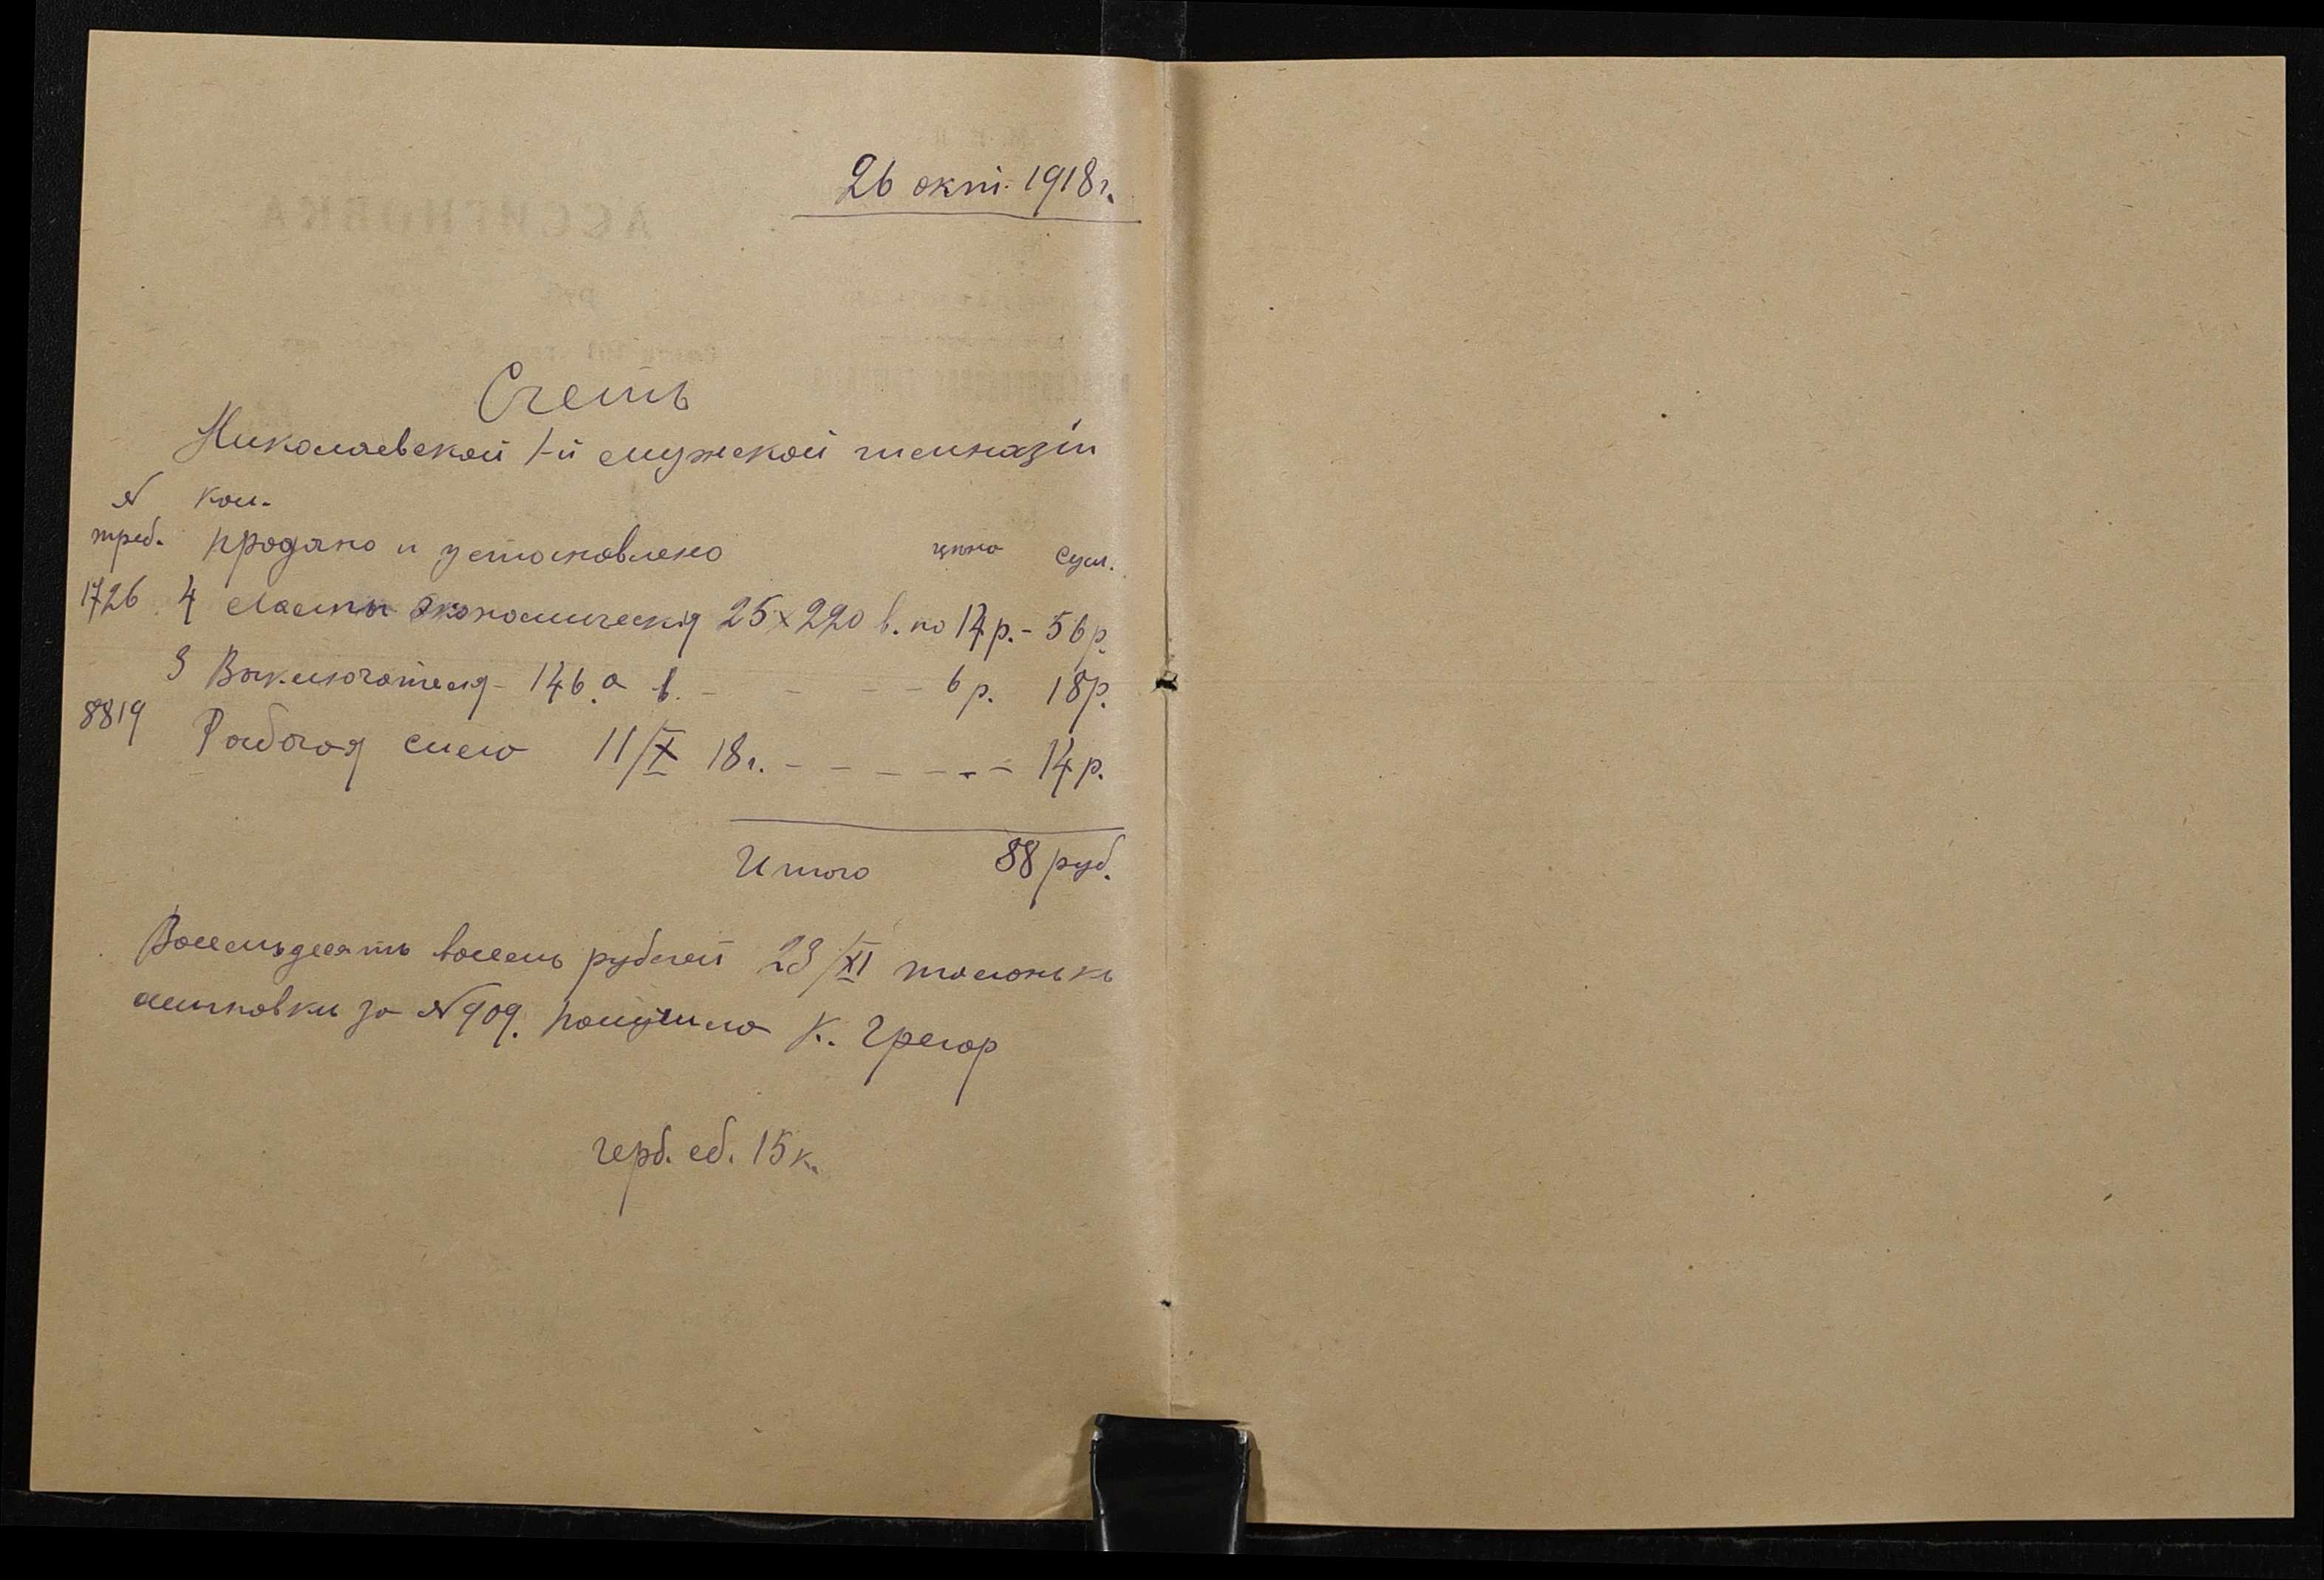 26 окт. 1918 г.
Счетъ
Николаевской 1-й мужской гимназіи
№ Кол.
треб. продано и установлено цена Сум.
1726 4 лампы экономическія 25х220 в. по 14 р. - 56 р.
3 Выключателя - 146 а в. - - - - 6 р. 18 р.
8819 Рабочая сила 11/X 18 г. - - - - - - 14 р.
Итого 88 руб.
Восемьдесятъ восемь рублей 23/XI талонъ къ
асигновки за № 909. получила К. Грегор
герб. сб. 15 к.
АССИГНОВКА